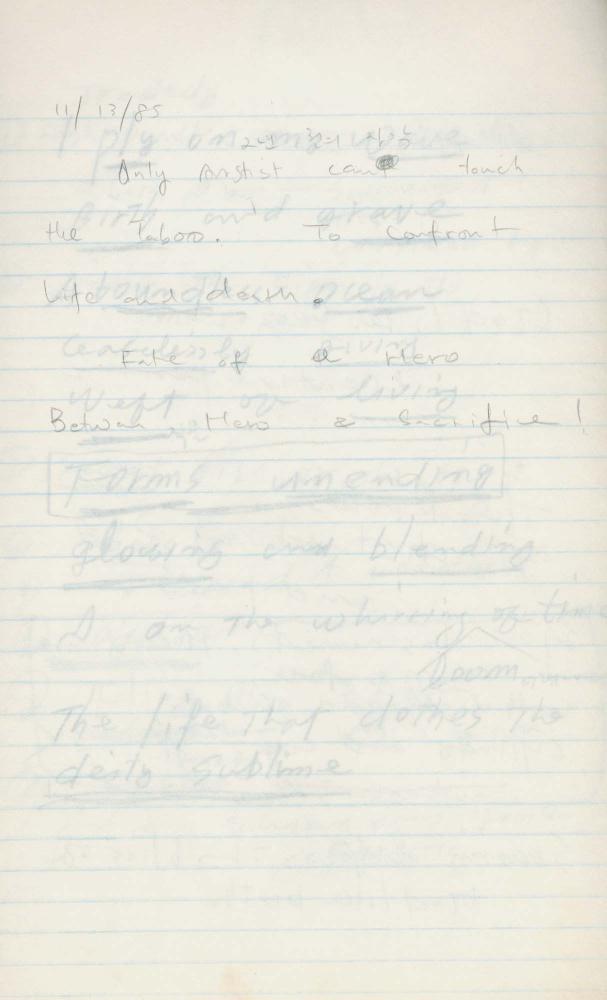 11/13/85
I ply on
Only can touch
Birth and grave
the Taboo. To confront
A boundless ocean
Life and death.
Ceaselessly giving
Fate of a Hero
Weft of living
Between Hero & Sacrifice!
Forms unending
glowing and blending
I on the whirring of time
Loom
The life that clothes the
deity sublime